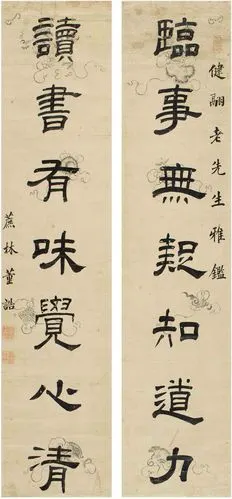 健翮老先生雅鑑
臨事無疑知道力
讀書有味覺心清
蔗林董誥